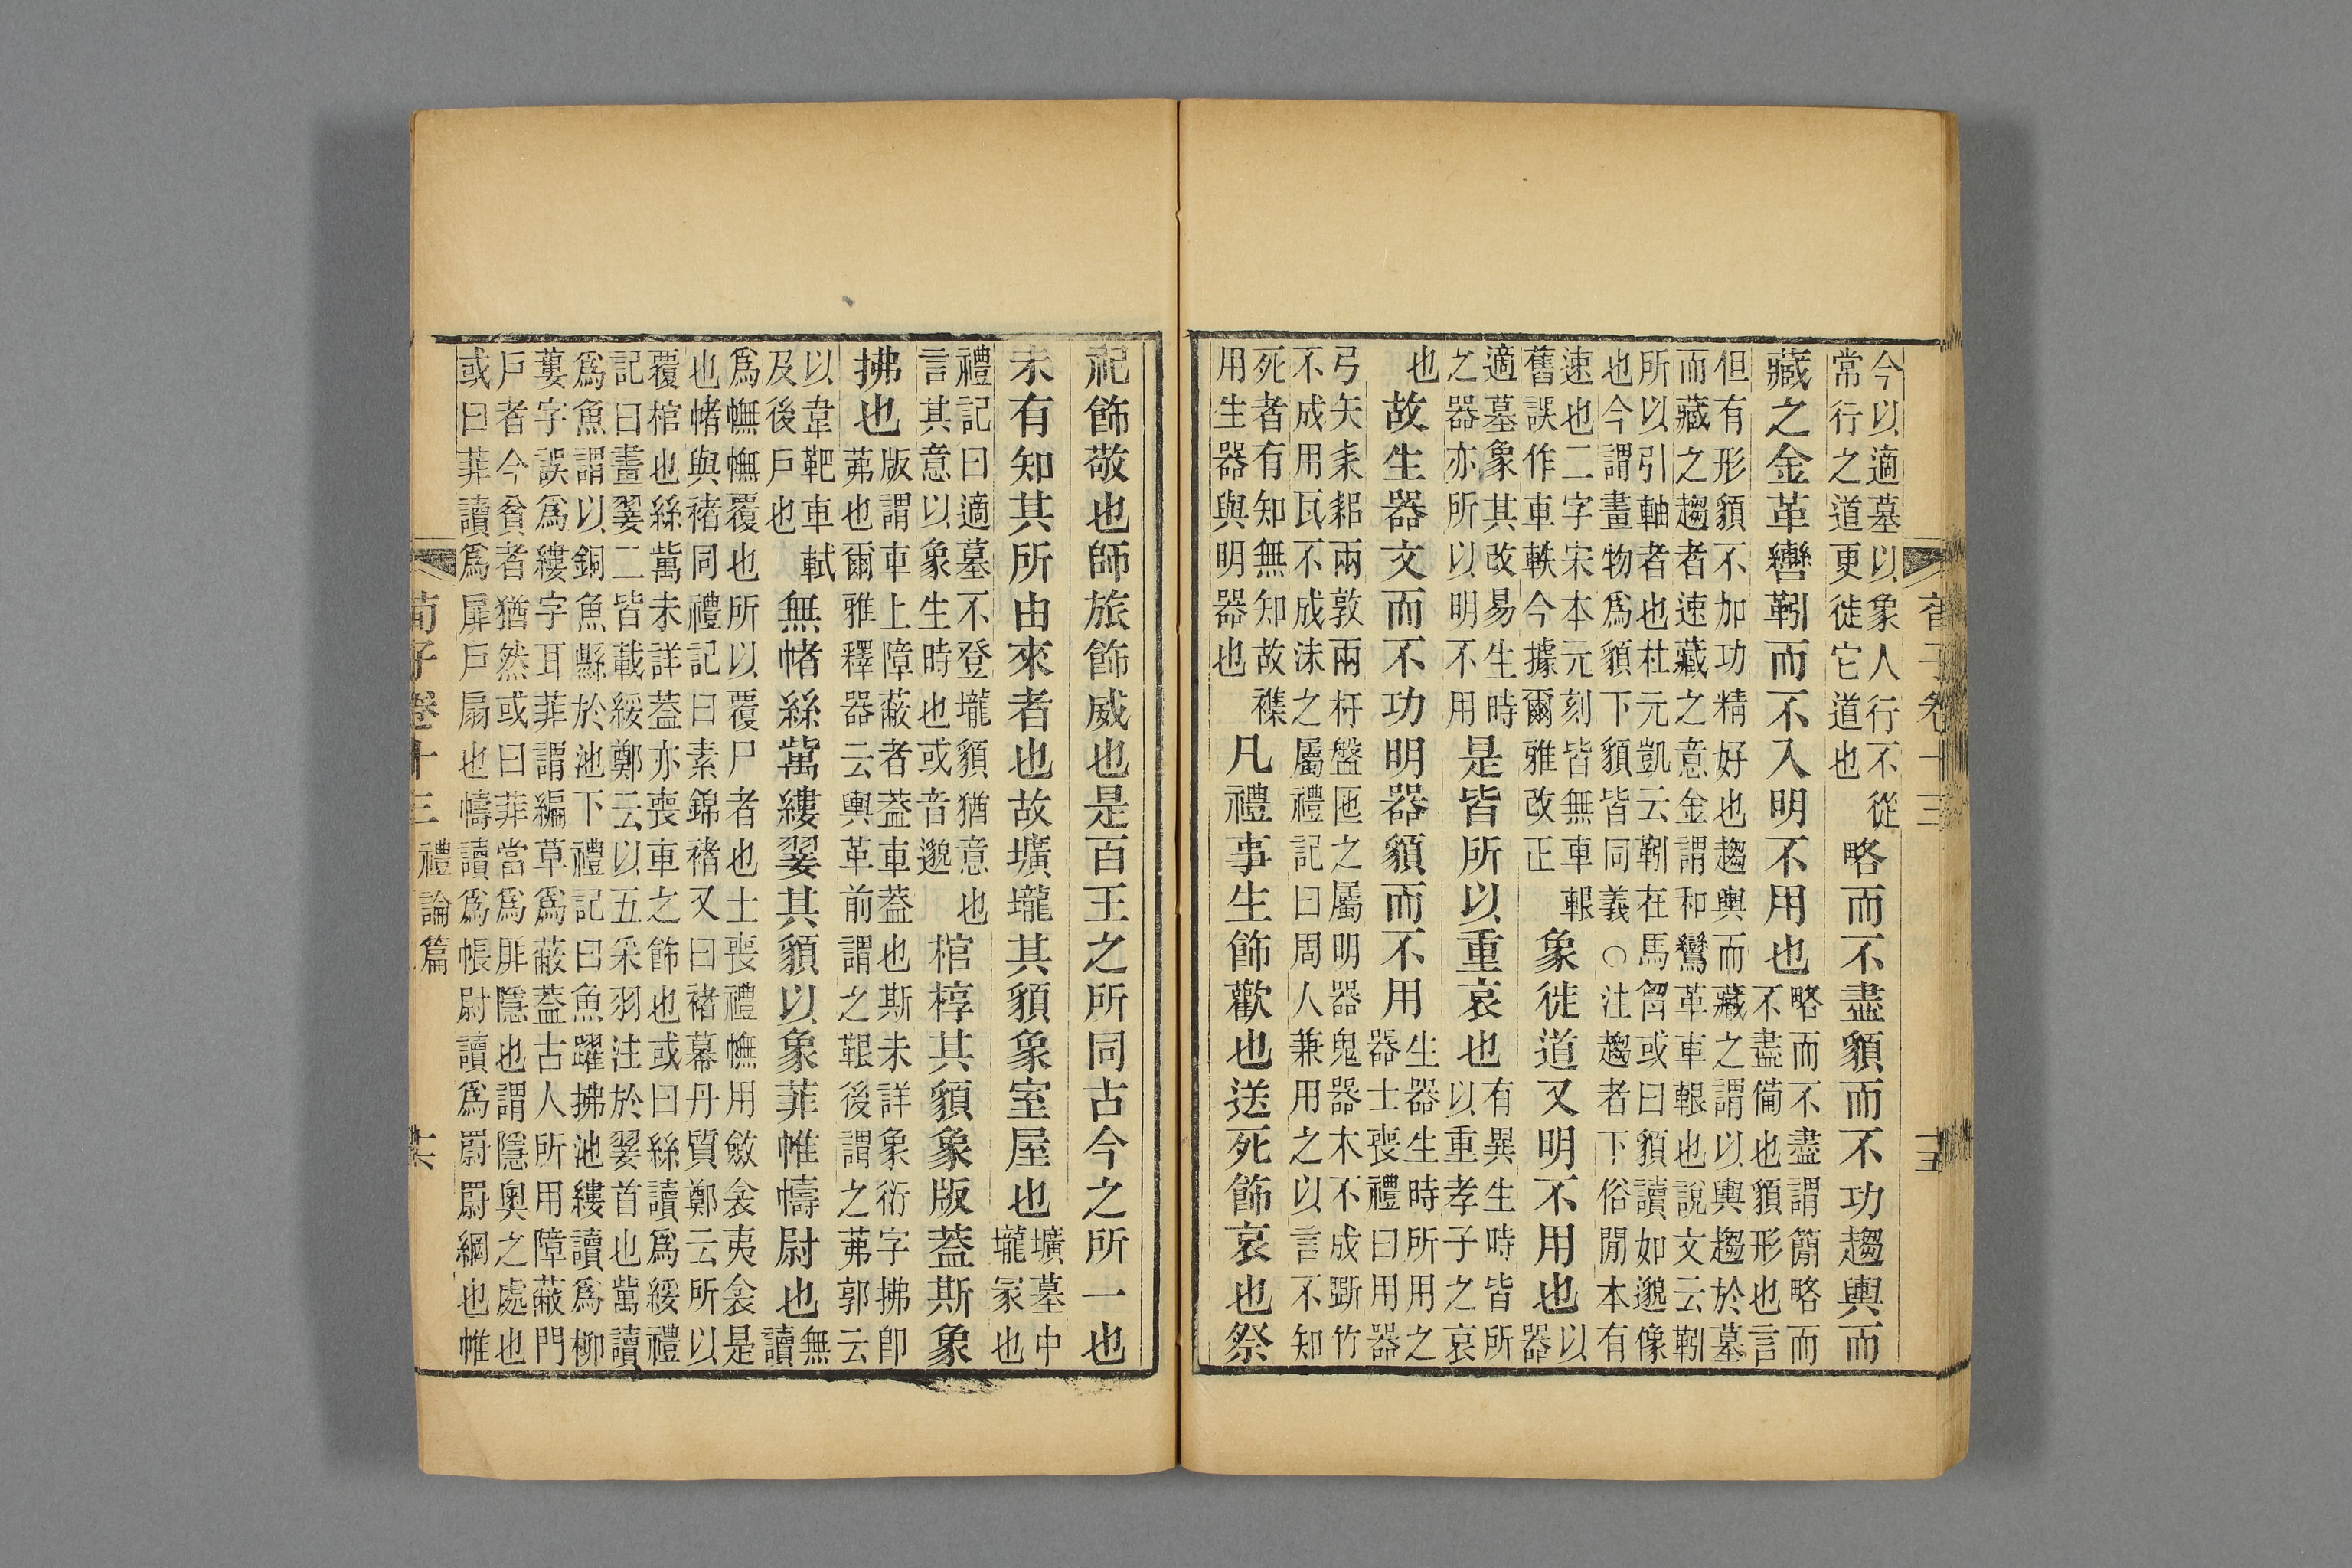 今以適墓以象人行不從
常行之道更徙它道也
略而不盡䫉而不功趨輿而
藏之金革轡靷而不入明不用也
略而不盡謂簡略而
不盡備也䫉形也言
但有形䫉不加功精好也趨輿而藏之謂以輿趨於墓
而藏之趨者速藏之意金謂和鸞革車鞎也說文云靷
所以引軸者也杜元凱云靷在馬胷或曰䫉讀如邈像
也今謂畫物爲䫉下䫉皆同義○注趨者下俗閒本有
速也二字宋本元刻皆無車鞎
舊誤作車軼今據爾雅改正
象徙道又明不用也
以
器
適墓象其改易生時
之器亦所以明不用
是皆所以重哀也
有異生時皆所
以重孝子之哀
也
故生器文而不功明器䫉而不用
生器生時所用之
器士喪禮曰用器
弓矢耒耜兩敦兩杅盤匜之屬明器鬼器木不成斲竹
不成用瓦不成沬之屬禮記曰周人兼用之以言不知
死者有知無知故襍
用生器與明器也
凡禮事生飾歡也送死飾哀也祭
祀飾敬也師旅飾威也是百王之所同古今之所一也
未有知其所由來者也故壙壠其䫉象室屋也
壙墓中
壠冢也
禮記曰適墓不登壠䫉猶意也
言其意以象生時也或音邈
棺椁其䫉象版葢斯象
拂也
版謂車上障蔽者葢車葢也斯未詳象衍字拂卽
茀也爾雅釋器云輿革前謂之鞎後謂之茀郭云
以韋靶車軾
及後戶也
無帾絲歶縷翣其䫉以象菲帷幬尉也
無
讀
爲幠幠覆也所以覆尸者也士喪禮幠用斂衾夷衾是
也帾與褚同禮記曰素錦褚又曰褚幕丹質鄭云所以
覆棺也絲歶未詳葢亦喪車之飾也或曰絲讀爲綏禮
記曰畫翣二皆載綏鄭云以五采羽注於翣首也歶讀
爲魚謂以銅魚縣於池下禮記曰魚躍拂池縷讀爲柳
蔞字誤爲縷字耳菲謂編草爲蔽葢古人所用障蔽門
戶者今貧者猶然或曰菲當爲厞隱也謂隱奧之處也
或曰菲讀爲扉戶扇也幬讀爲帳尉讀爲罻罻網也帷
荀子卷十三
禮論篇